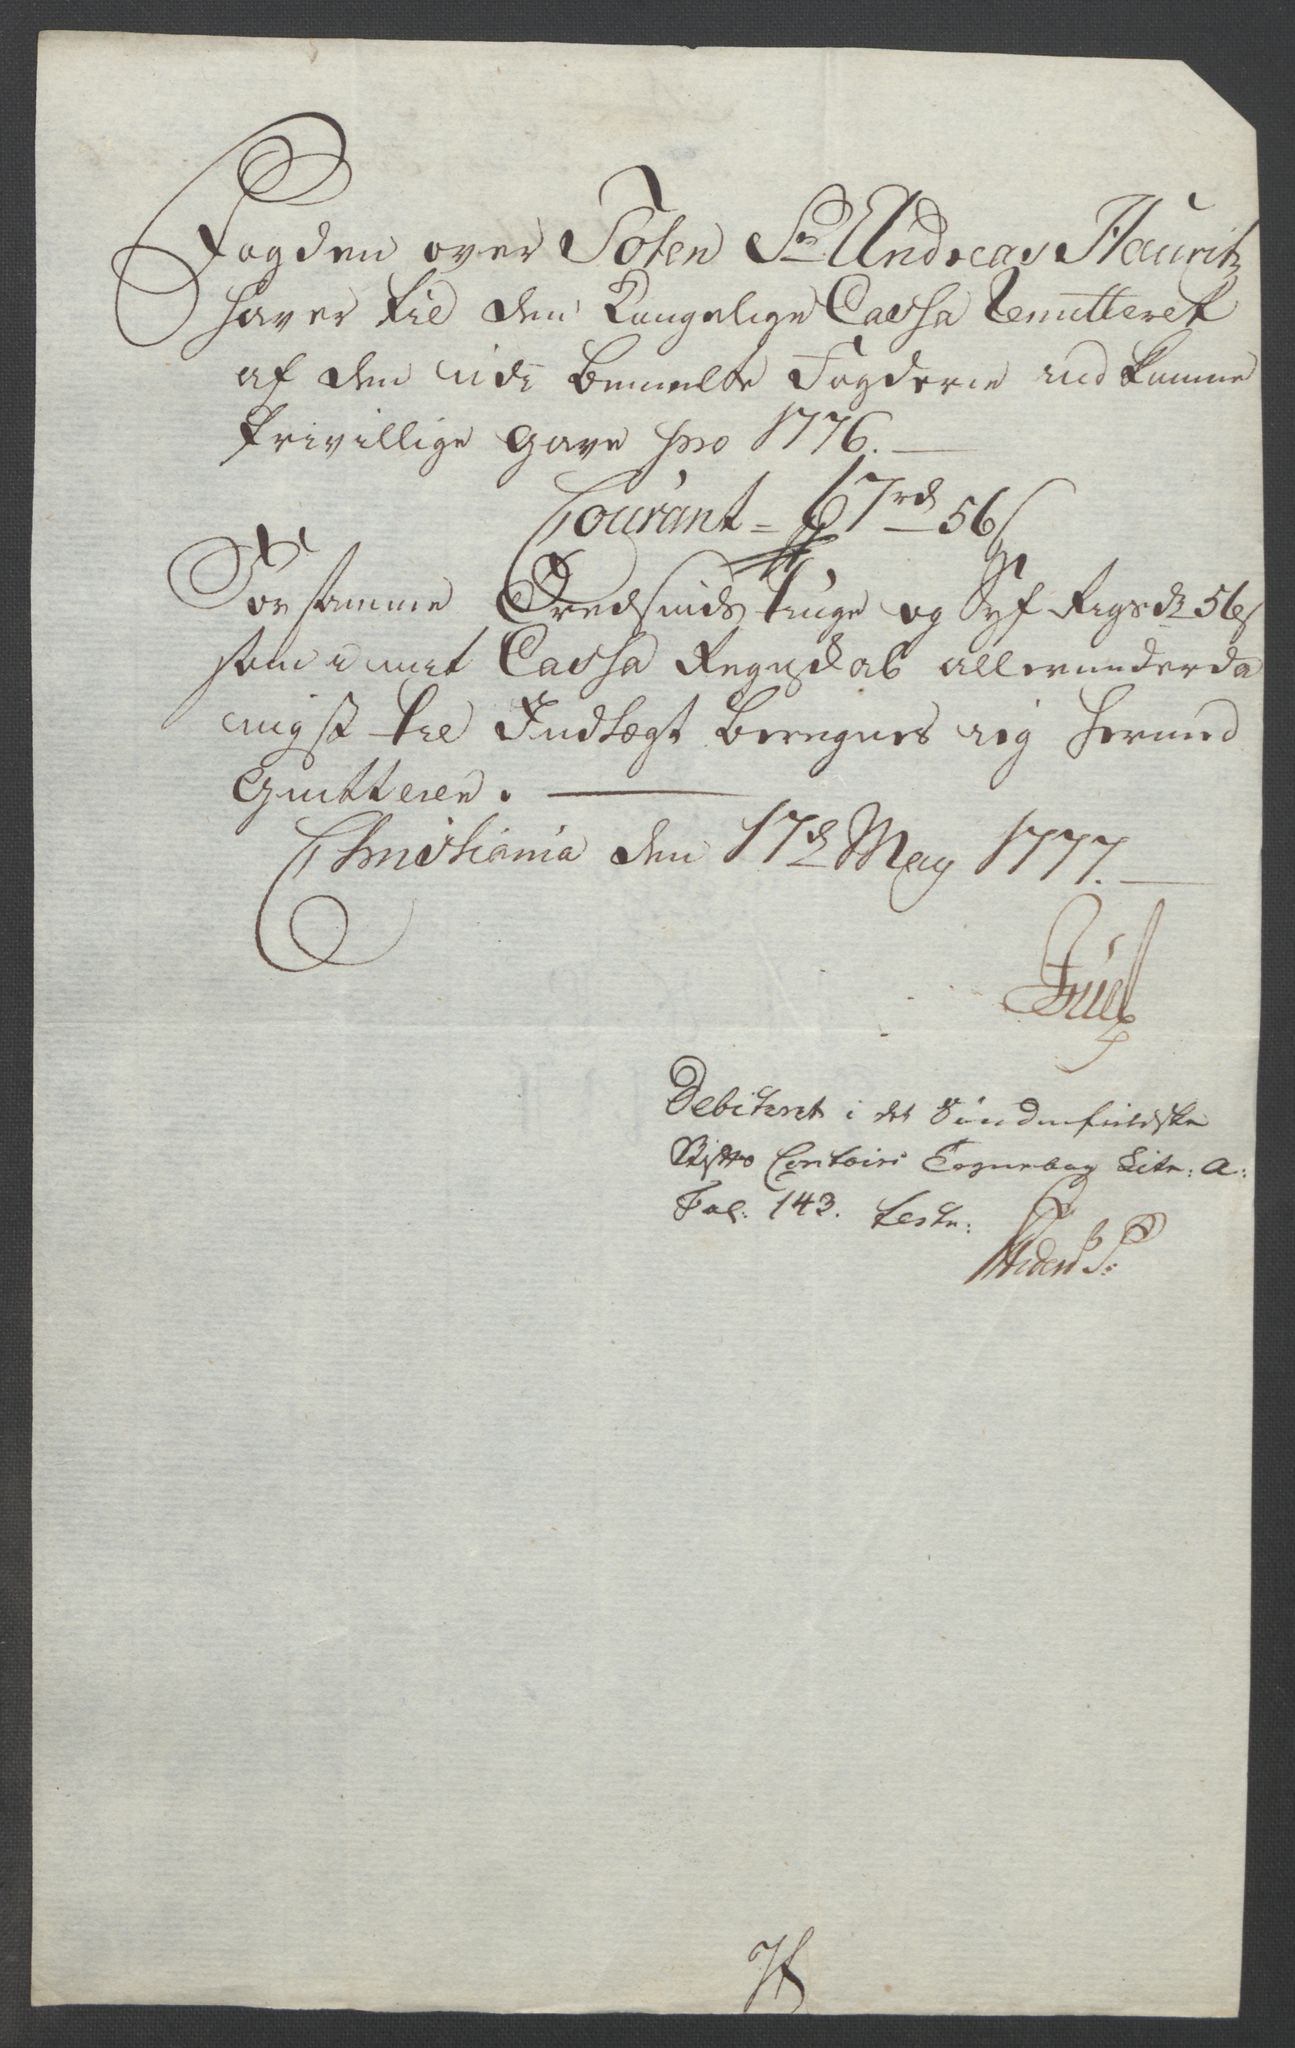 Fogden over Toten Sr Andreas Hauritz
haver til den Kongelige Cassa Remitteret
af den udi bemelte Fogderie ind komne
frivillige Gave pro 1776.
Courant = 67 rd 56 s
For samme Tredsinds tiuge og Syf Rigsdr 56 s
som i mit Cassa Regnskab allerunderda
nigst til Indtægt beregnes rig hermed
Qvitterer.
Christiania den 17de May 1777.
Juel
Debiteret i det Søndenfieldske
Contoirs Copiebog Litr: A:
Fol: 143. test: